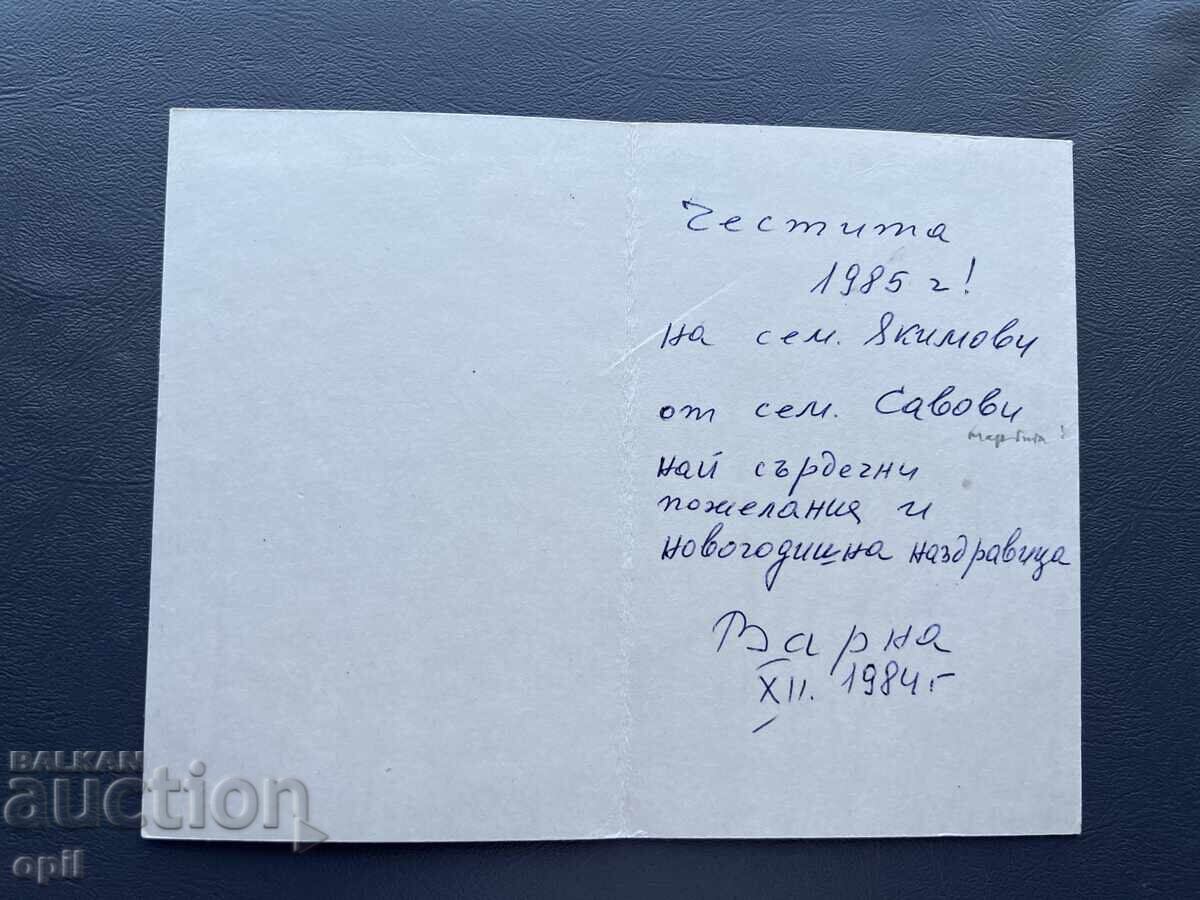 Честита
1985 г!
на сем. Якимови
от сем. Савови
най сърдечни
пожелания и
новогодишна наздравица
Варна
XII. 1984 г
BALKAN
auction
opil